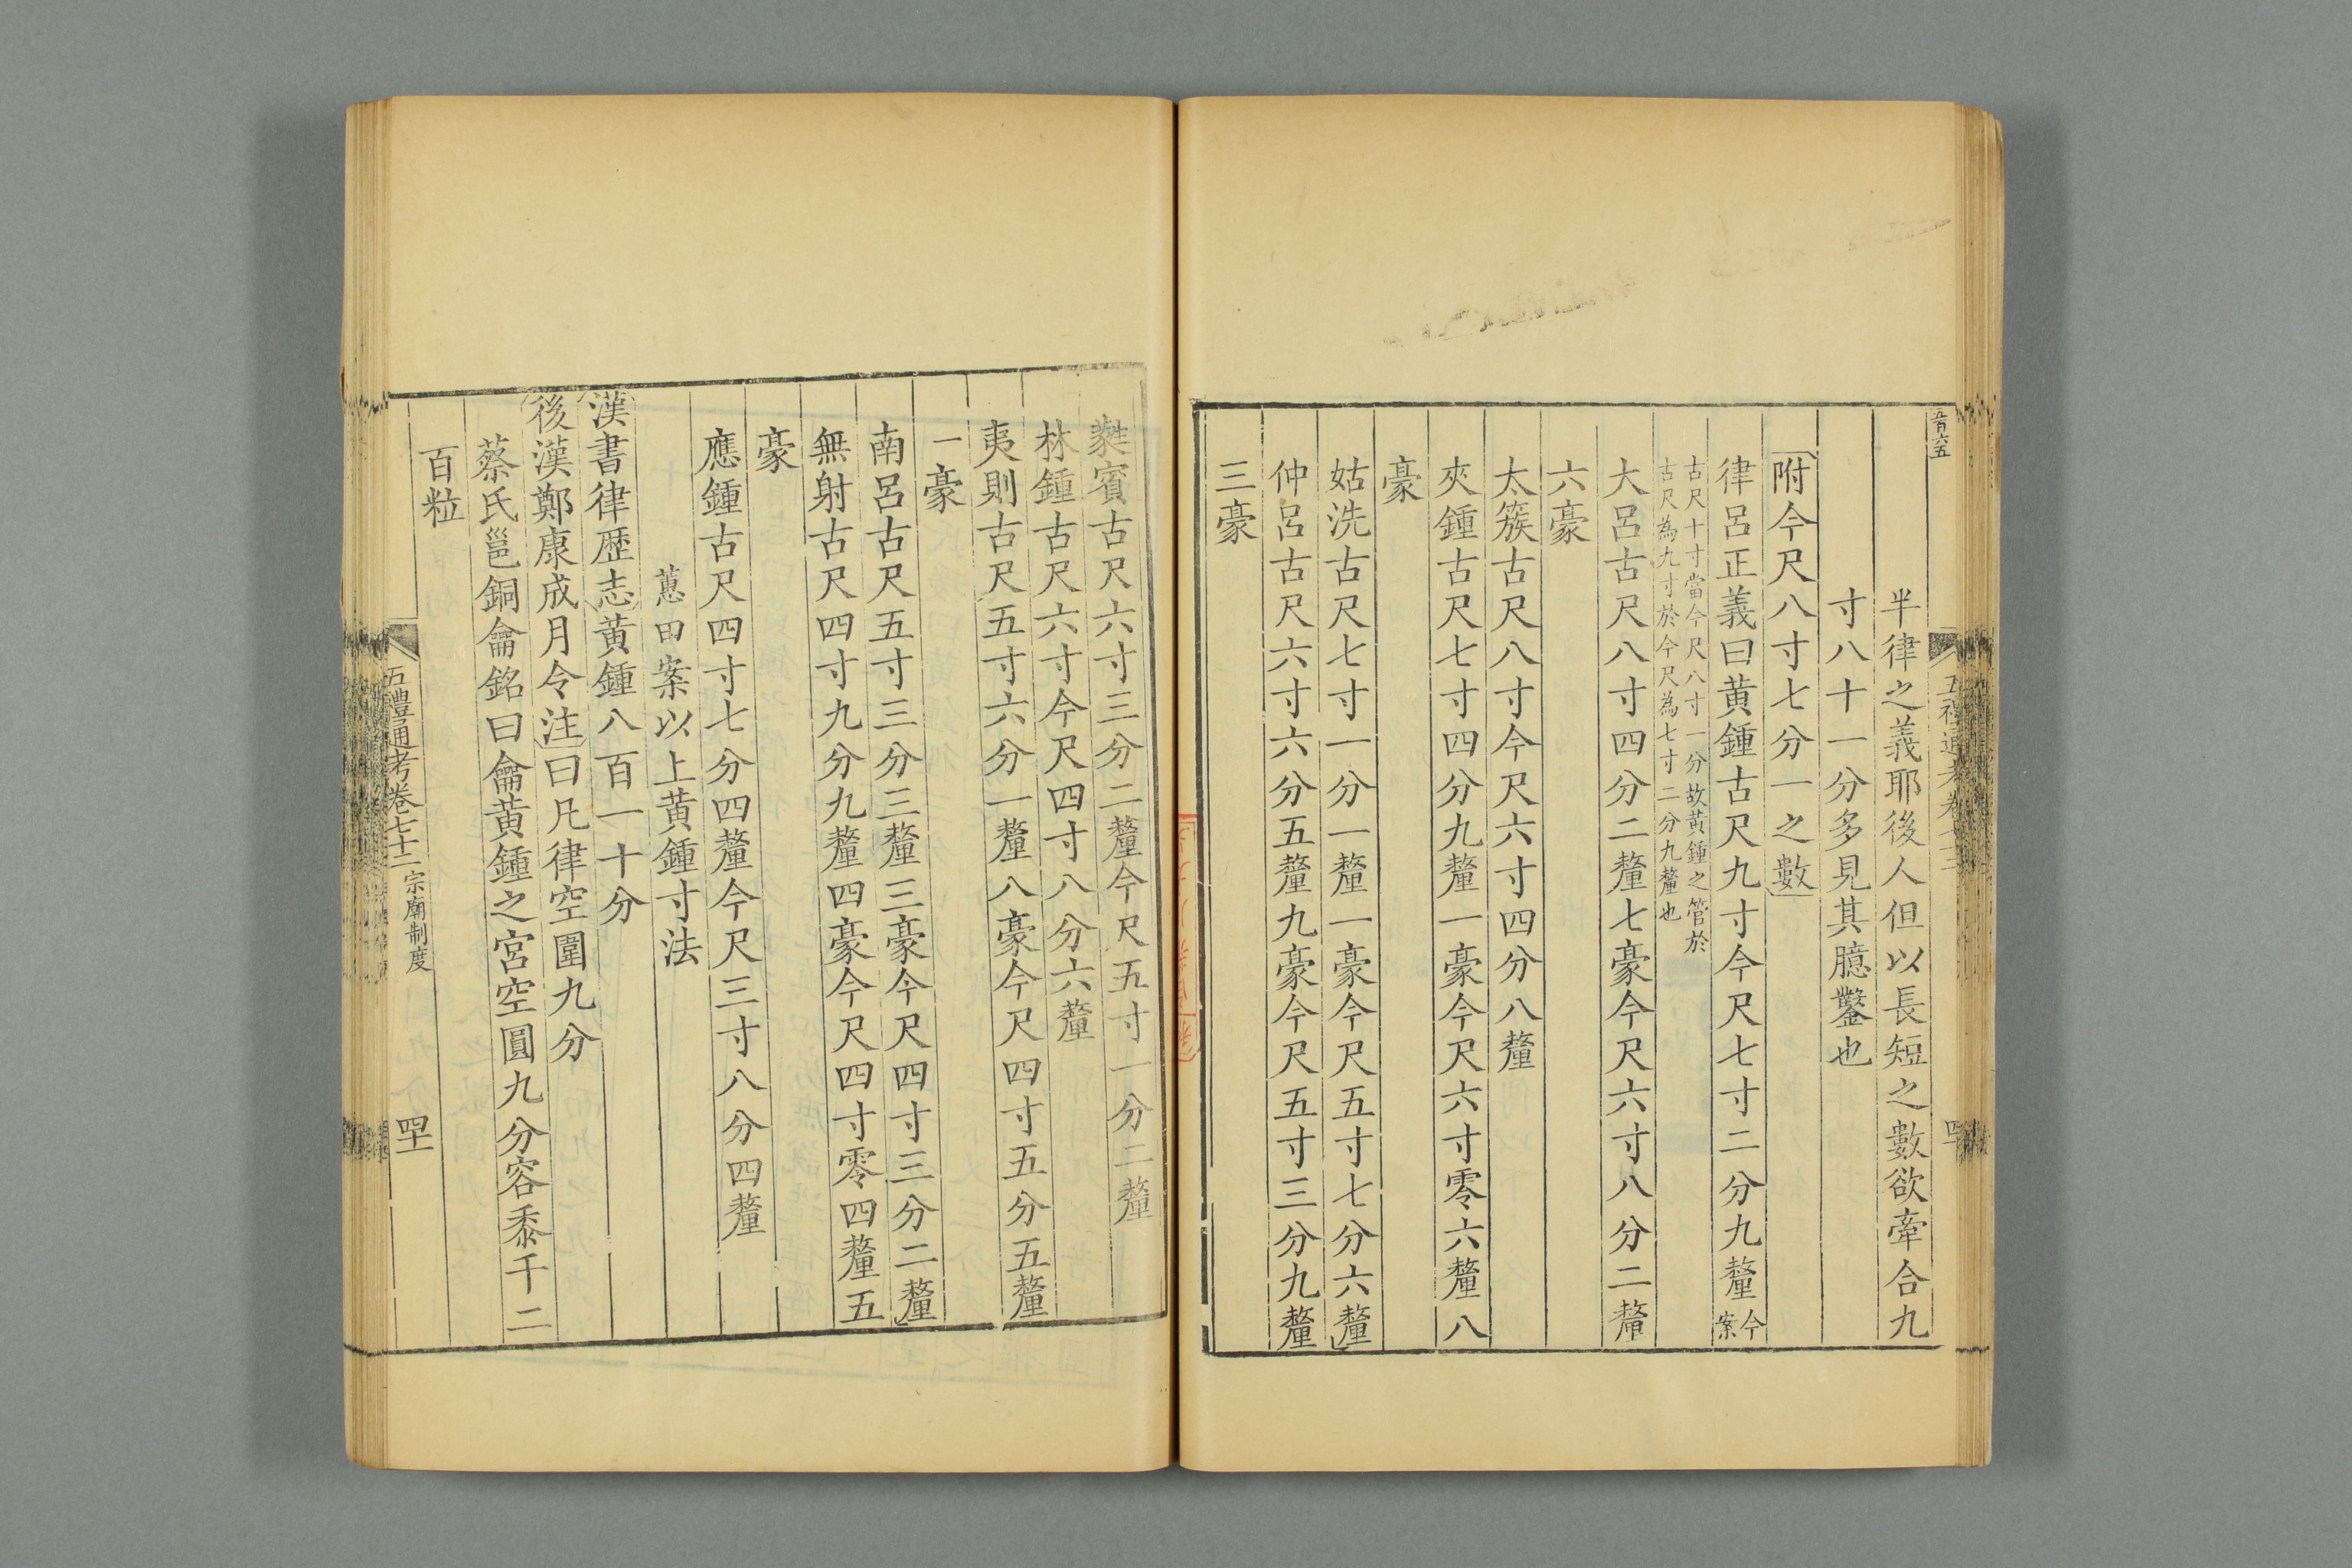 五百六五
半律之義耶後人但以長短之數欲牽合九
寸八十一分多見其臆鑿也
附今尺八寸七分一之數
律呂正義曰黃鍾古尺九寸今尺七寸二分九釐今案
古尺十寸當今尺八寸一分故黃鍾之管於
古尺為九寸於今尺為七寸二分九釐也
大呂古尺八寸四分二釐七豪今尺六寸八分二釐
六豪
太簇古尺八寸今尺六寸四分八釐
夾鍾古尺七寸四分九釐一豪今尺六寸零六釐八
豪
姑洗古尺七寸一分一釐一豪今尺五寸七分六釐
仲呂古尺六寸六分五釐九豪今尺五寸三分九釐
三豪
蕤賓古尺六寸三分二釐今尺五寸一分二釐
林鍾古尺六寸今尺四寸八分六釐
夷則古尺五寸六分一釐八豪今尺四寸五分五釐
一豪
南呂古尺五寸三分三釐三豪今尺四寸三分二釐
無射古尺四寸九分九釐四豪今尺四寸零四釐五
豪
應鍾古尺四寸七分四釐今尺三寸八分四釐
蕙田案以上黃鍾寸法
漢書律歷志黃鍾八百一十分
後漢鄭康成月令注曰凡律空圍九分
蔡氏邕銅龠銘曰龠黃鍾之宮空圓九分容黍千二
百粒
五禮通考卷七十二 宗廟制度